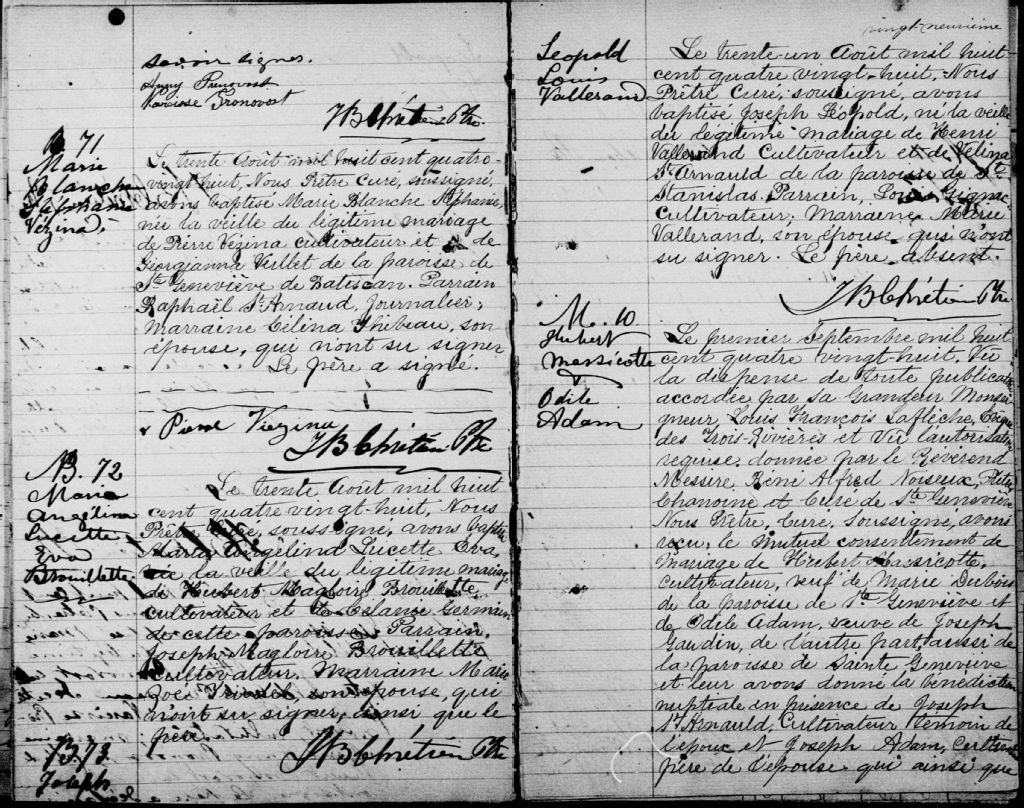 savoir signer.
Narcisse Pronovost
JB Chrétien Ptre
B. 71
Marie
Blanche
Stéphanie
Vézina.
Le trente Août mil huit cent quatre-
vingt-huit, Nous Prêtre Curé, soussigné,
avons baptisé Marie Blanche Stéphanie,
née la veille du légitime mariage
de Pierre Vézina cultivateur et de
Georgianna Veillet de la paroisse de
Ste Geneviève de Batiscan. Parrain
Raphaël St Arnaud, Journalier,
Marraine Célina Thibeau, son
épouse, qui n'ont su signer
Le père a signé.
JB Chrétien Ptre
B. 72
Maria
Angélina
Lucette
Eva
Brouillette
Le trente Août mil huit
cent quatre vingt-huit, Nous
Prêtre Curé, soussigné, avons baptisé
Maria Angélina Lucette Eva,
née la veille du légitime mariage
de Hubert Magloire Brouillette,
cultivateur et de Germain
de cette paroisse Parrain,
Joseph Magloire Brouillette
Cultivateur. Marraine Marie
Zoé son épouse, qui
n'oint su signer, ainsi que le
père
JB Chrétien Ptre
B. 73
Joseph
vingt-neuvième
Leopold
Louis
Vallerand
Le trente-un Août mil huit
cent quatre vingt-huit, Nous
Prêtre Curé, soussigné, avons
baptisé Joseph Léopold, né la veille
du légitime mariage de Henri
Vallerand Cultivateur et de Zélina
St Arnauld de la paroisse de St
Stanislas Parrain, Louis Gignac
Cultivateur; Marraine Marie
Vallerand, son épouse qui n'ont
su signer. Le père absent.
JB Chrétien Ptre
M. 10
Hubert
Marsicotte
&
Odile
Adam
Le premier Septembre mil huit
cent quatre vingt-huit, Vu
la dispense de toute publication
accordée par sa Grandeur Monsei-
gneur Louis François Laflèche, Evêque
des Trois-Rivières et Vu l'autorisation
requise, donnée par le Révérend
Messire René Alfred Noiseux, Prêtre
Chanoine et Curé de Ste Geneviève
Nous Prêtre, Curé, soussigné, avons
reçu, le mutuel consentement de
mariage de Hubert Massicotte,
cultivateur, veuf de Marie Dubois
de la paroisse de Ste Geneviève et
de Odile Adam, veuve de Joseph
Gaudin, de l'autre part, aussi de
la paroisse de Sainte Geneviève
et leur avons donné la bénédiction
nuptiale en présence de Joseph
St Arnauld, Cultivateur témoin de
l'époux et Joseph Adam, Cultivateur
père de l'épouse qui ainsi que